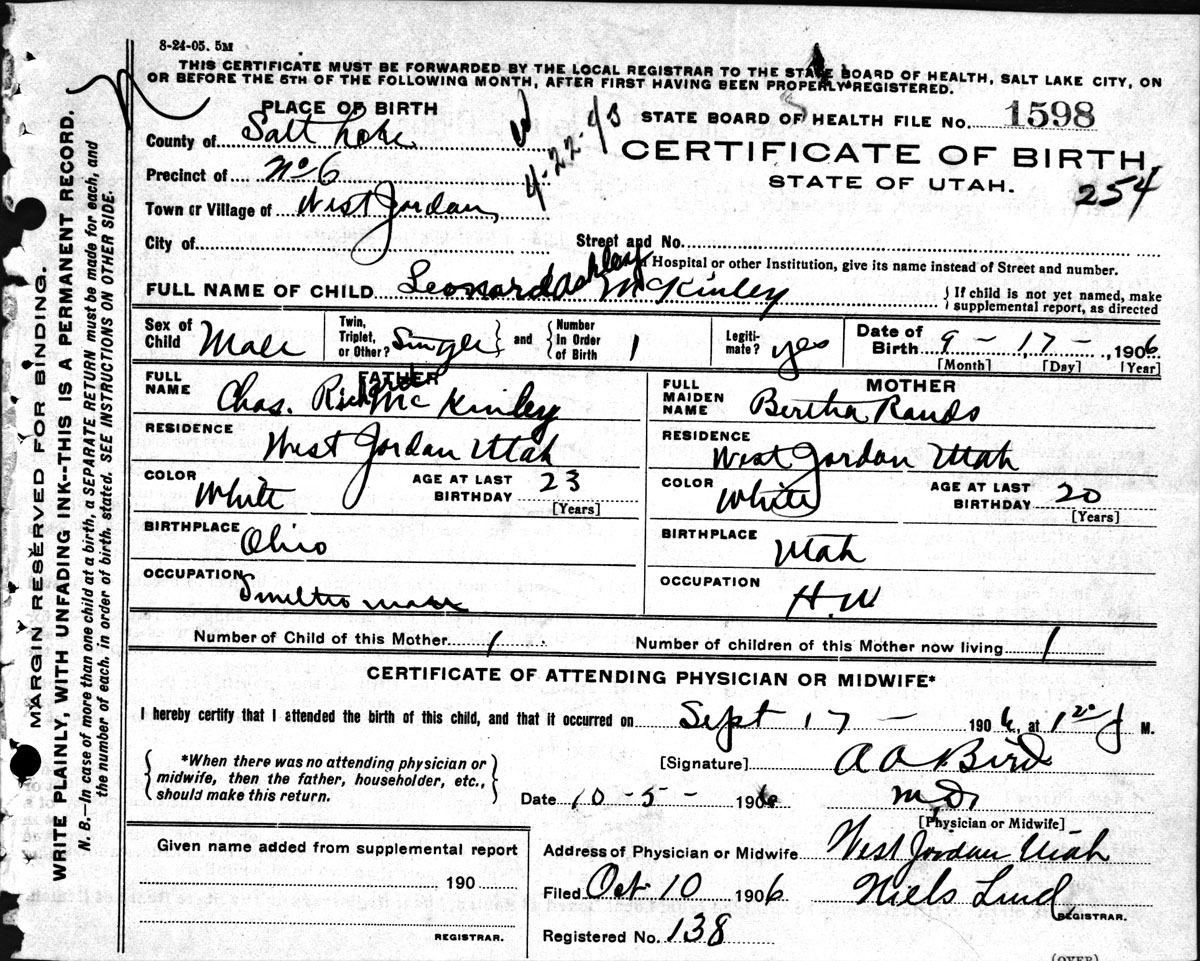 8-24-05. 5M
THIS CERTIFICATE MUST BE FORWARDED BY THE LOCAL REGISTRAR TO THE STATE BOARD OF HEALTH, SALT LAKE CITY, ON
OR BEFORE THE 5TH OF THE FOLLOWING MONTH, AFTER FIRST HAVING BEEN PROPERLY REGISTERED.
PLACE OF BIRTH
STATE BOARD OF HEALTH FILE No. 1598
County of Salt Lake
4-22-43
CERTIFICATE OF BIRTH
Precinct of No 6
STATE OF UTAH.
254
Town or Village of West Jordan
City of
Street and No.
Hospital or other Institution, give its name instead of Street and number.
FULL NAME OF CHILD Leonard Ashley McKinley
If child is not yet named, make
supplemental report, as directed
Sex of Child Male
Twin, Triplet, or Other? Single and Number In Order of Birth 1
Legiti-mate? yes
Date of Birth 9 - 17 - , 1906
[Month] [Day] [Year]
FATHER
FULL NAME Chas. Richard McKinley
MOTHER
FULL MAIDEN NAME Bertha Rands
RESIDENCE West Jordan Utah
RESIDENCE West Jordan Utah
COLOR White AGE AT LAST BIRTHDAY 23
[Years]
COLOR White AGE AT LAST BIRTHDAY 20
[Years]
BIRTHPLACE Ohio
BIRTHPLACE Utah
OCCUPATION
OCCUPATION H.W
Number of Child of this Mother 1
Number of children of this Mother now living 1
CERTIFICATE OF ATTENDING PHYSICIAN OR MIDWIFE*
I hereby certify that I attended the birth of this child, and that it occurred on Sept 17 - 1906, at M.
*When there was no attending physician or
midwife, then the father, householder, etc.,
should make this return.
[Signature] A A Bird
Date 10 - 5 - 1906 M.D.
[Physician or Midwife]
Given name added from supplemental report
Address of Physician or Midwife West Jordan Utah
190
Filed Oct 10 1906 Niels Lind
REGISTRAR.
REGISTRAR.
Registered No. 138
(OVER)
MARGIN RESERVED FOR BINDING.
WRITE PLAINLY, WITH UNFADING INK--THIS IS A PERMANENT RECORD.
N. B.—In case of more than one child at a birth, a SEPARATE RETURN must be made for each, and
the number of each, in order of birth, stated. SEE INSTRUCTIONS ON OTHER SIDE.